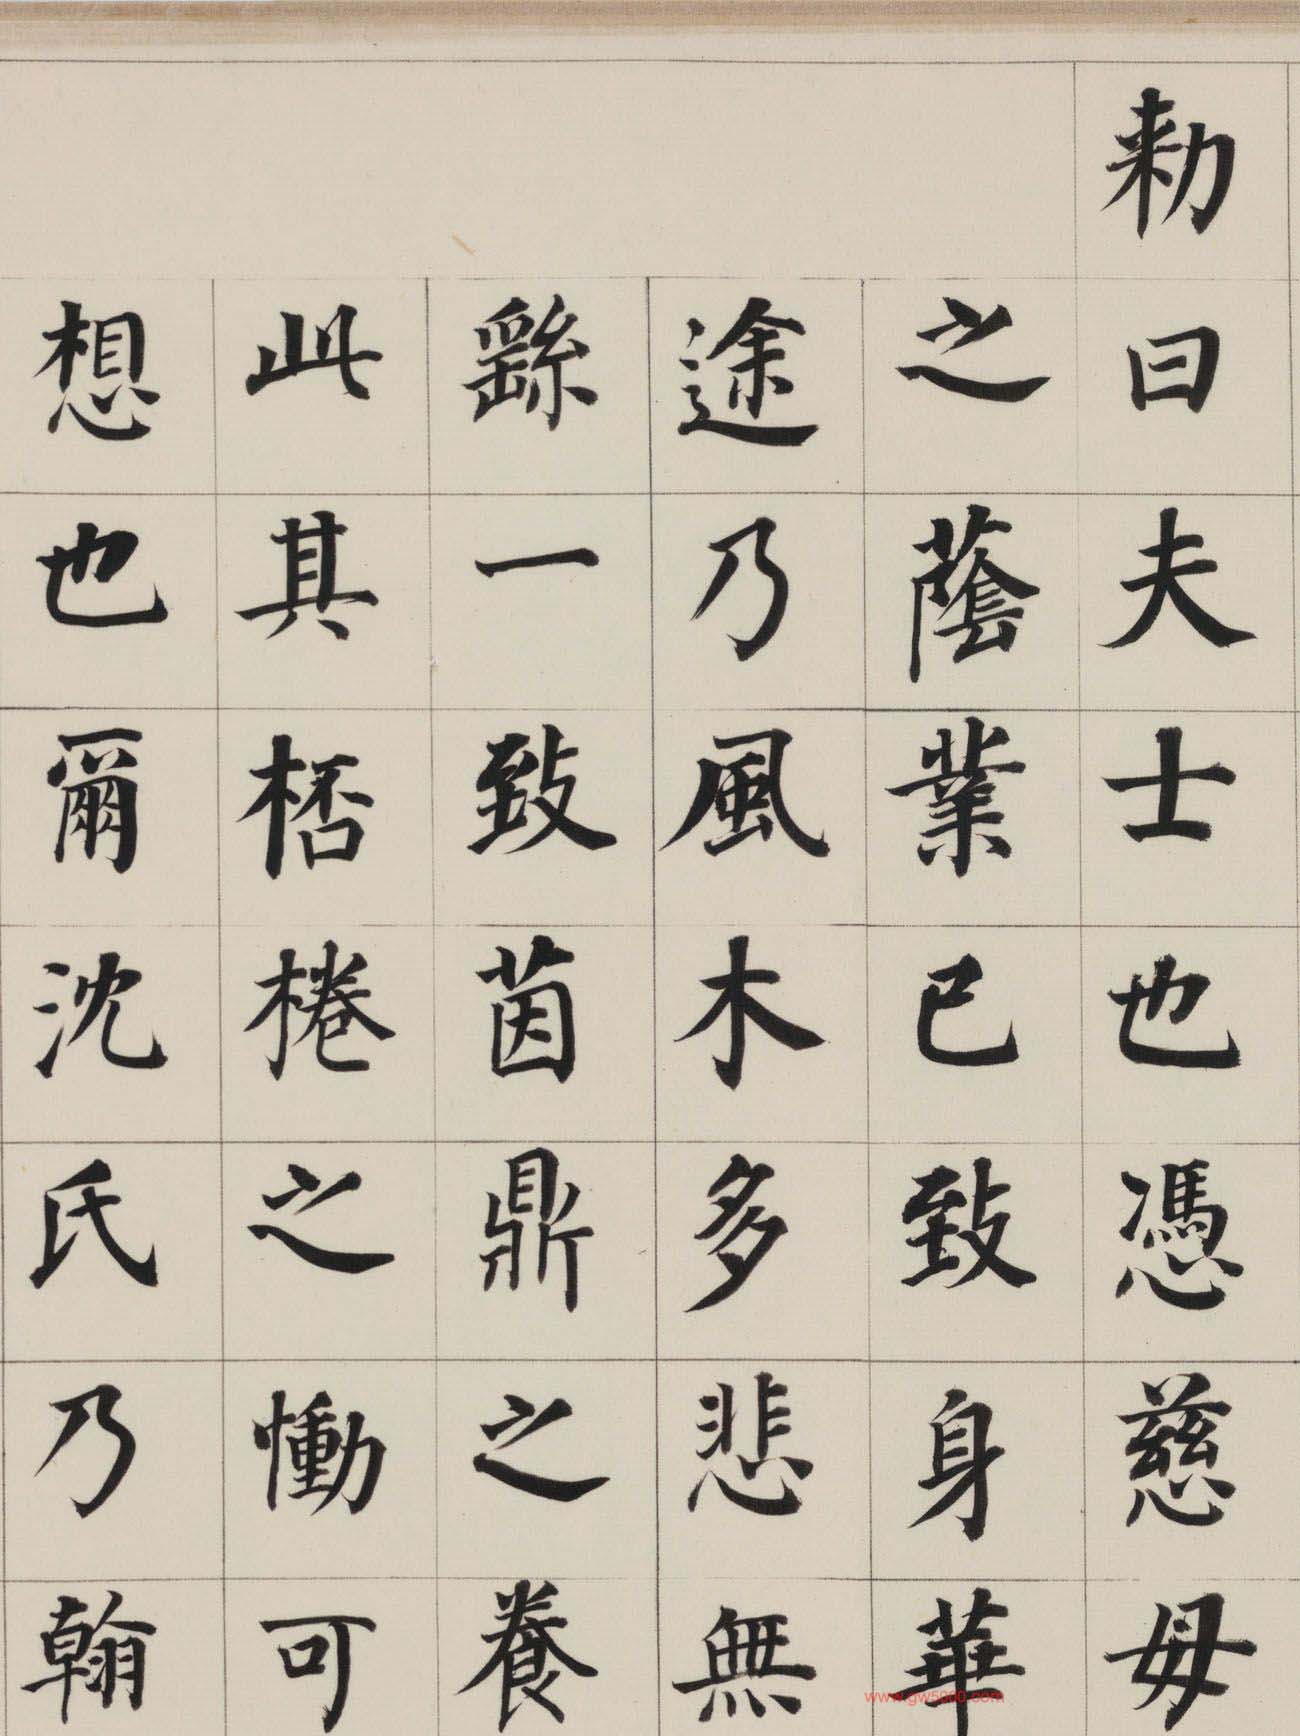 勑曰夫士也憑慈母
之蔭業已致身華
途乃風木多悲無
繇一致茵鼎之養
此其桮棬之慟可
想也爾沈氏乃翰
www.gw5000.com